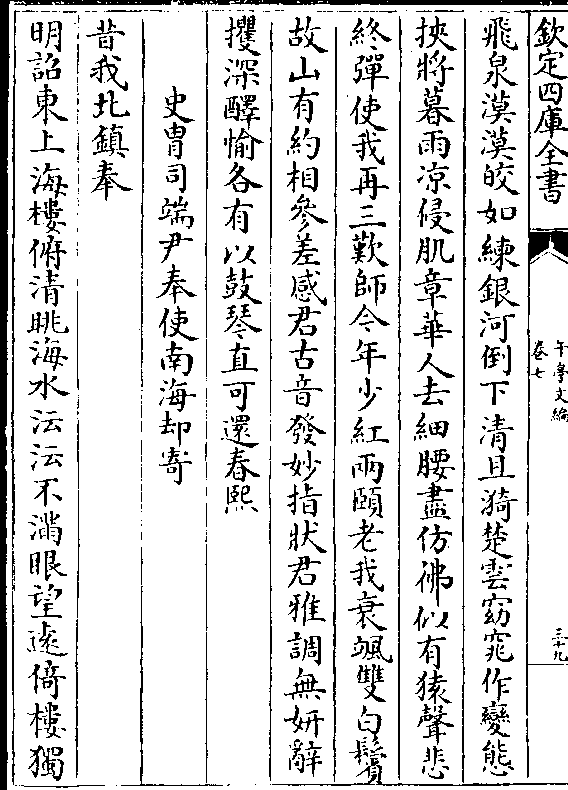 欽定四庫全書
午亭文編
卷七
三十九
飛泉漠漠皎如練銀河倒下清且漪楚雲窈窕作變態
挾將暮雨凉侵肌章華人去細腰盡仿彿似有猿聲悲
終彈使我再三歎師今年少紅兩頤老我衰颯雙白鬢
故山有約相參差感君古音發妙指狀君雅調無妍辭
攫深醳愉各有以鼓琴直可還春熙
史胄司端尹奉使南海却寄
昔我北鎮奉
明詔東上海樓俯清眺海水沄沄不滿眼望遠倚樓獨